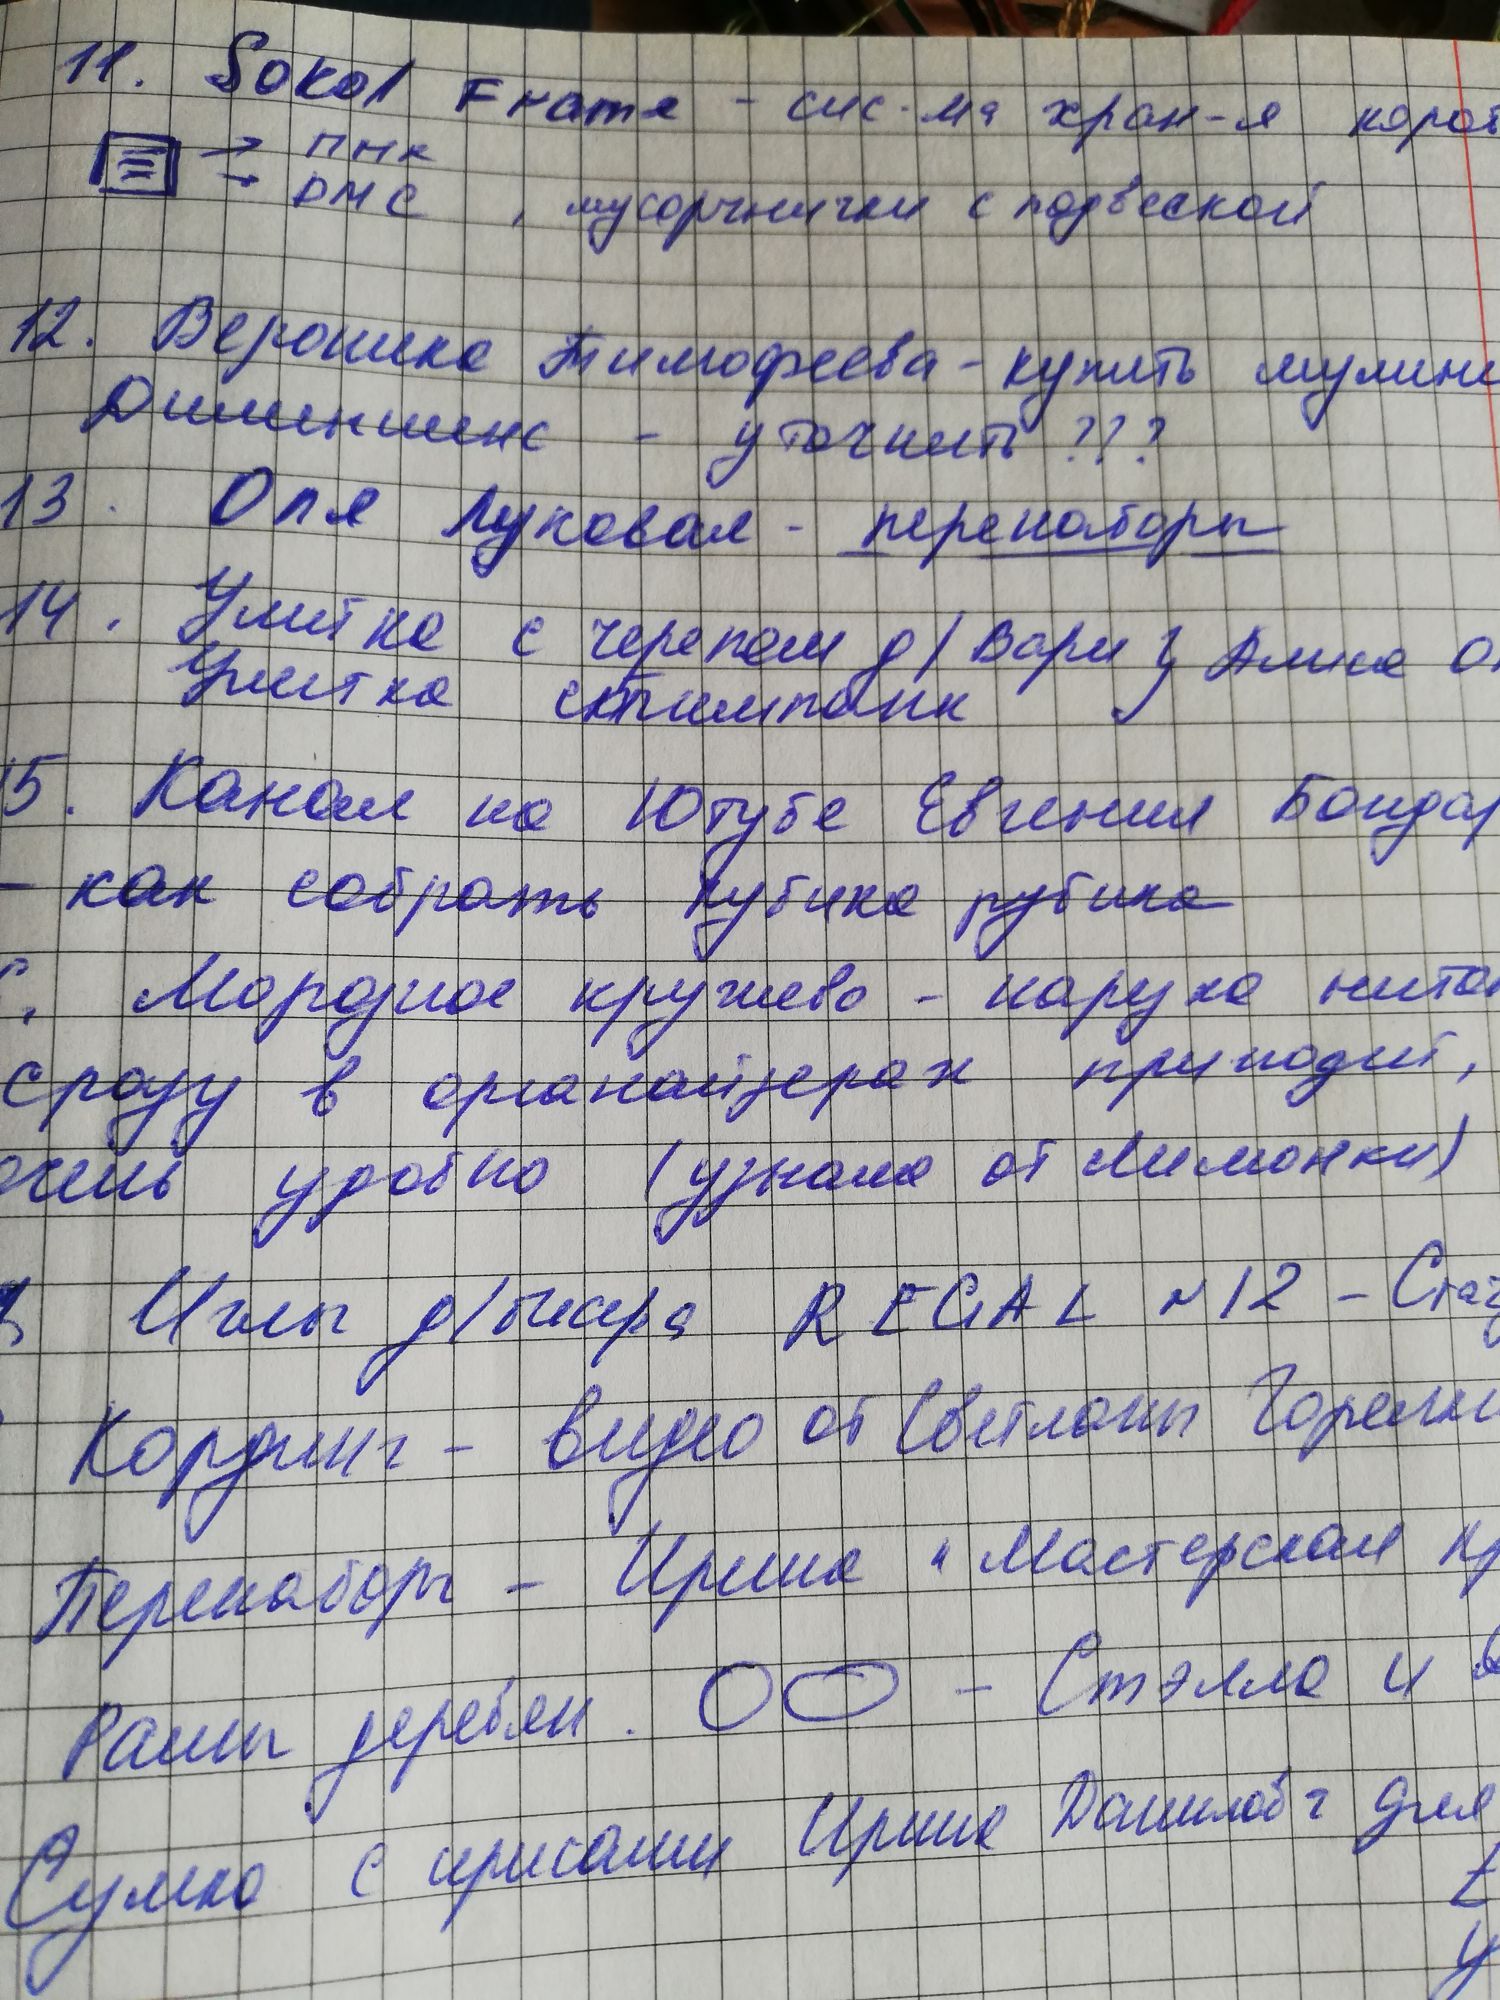 11. Sokol Frame - сис-ма хран-я короб
→ ПНК
→ DMC , мусорчнички с подвеской
12. Вероника Тимофеева - купить мулине
Дименшенс - уточнить ???
13. Оля Луковая - перенаборы
14. Улитка с черепом д/ Вари } Алиса
Улитка стимпанк
15. Канал на Ютубе Евгения Бондар
- как собрать кубика рубика
Модное кружево - наруха нитон
сразу в органайзерах приходит,
очень удобно (узнала от Лимонки)
Иглы д/бисера REGAL №12 -
Кординг - видео от Светланы
Перенаборы - Ирина "Мастерская кр
Рамы деревян. - Стэлла и
Сумка с ирисами Ирина Данилова для